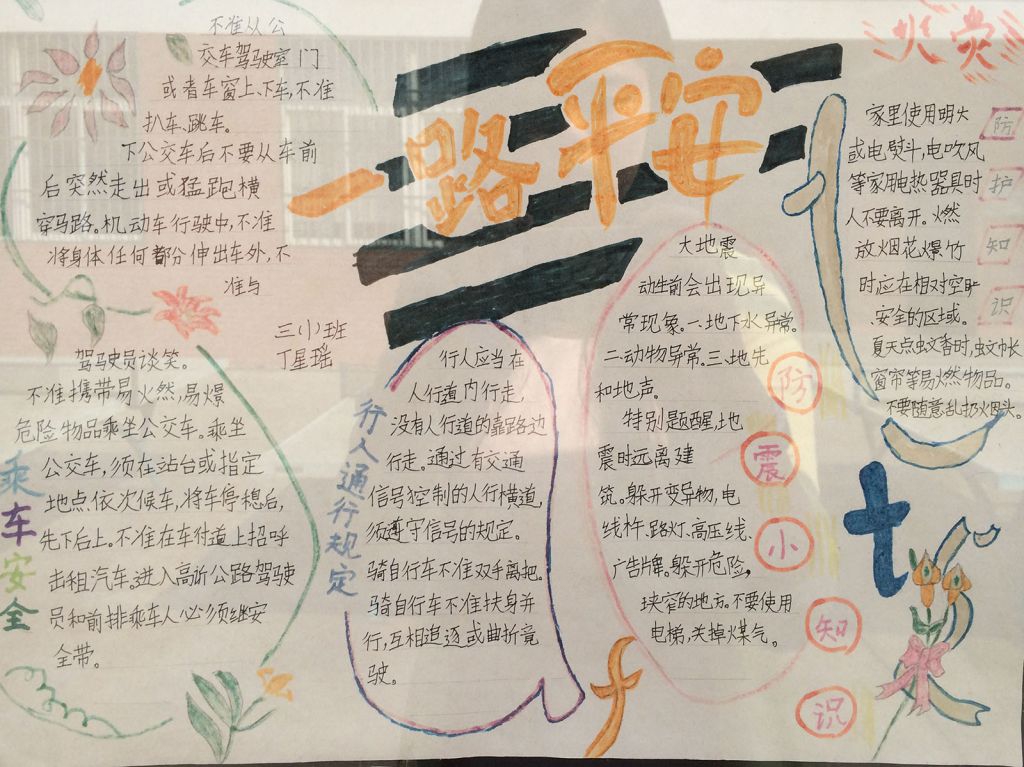 一路平安
不准从公
交车驾驶室门
或者车窗上、下车,不准
扒车、跳车。
下公交车后不要从车前
后突然走出或猛跑横
穿马路。机动车行驶中,不准
将身体任何部分伸出车外,不
准与
驾驶员谈笑。
不准携带易火燃,易爆
危险物品乘坐公交车。乘坐
公交车,须在站台或指定
地点依次候车,将车停稳后,
先下后上。不准在车行道上招呼
出租汽车。进入高所公路驾驶
员和前排乘车人必须继安
全带。
乘车安全
三(1)班
丁星瑶
行人通行规定
行人应当在
人行道内行走,
没有人行道的靠路边
行走。通过有交通
信号控制的人行横道,
须遵守信号的规定。
骑自行车不准双手离把。
骑自行车不准扶身并
行,互相追逐或曲折竞
驶。
大地震
动生前会出现异
常现象。一、地下水异常。
二、动物异常。三、地光
和地声。
特别题醒,地
震时远离建
筑。躲开变异物,电
线杵、路灯、高压线、
广告牌。躲开危险,
狭窄的地方。不要使用
电梯,关掉煤气。
防震小知识
火灾
防护知识
家里使用明火
或电熨斗,电吹风
等家用电热器具时
人不要离开。燃
放烟花爆竹
时应在相对空旷
安全的区域。
夏天点蚊香时,蚊帐
窗帘等易燃物品。
不要随意乱扔火烟头。
f
t